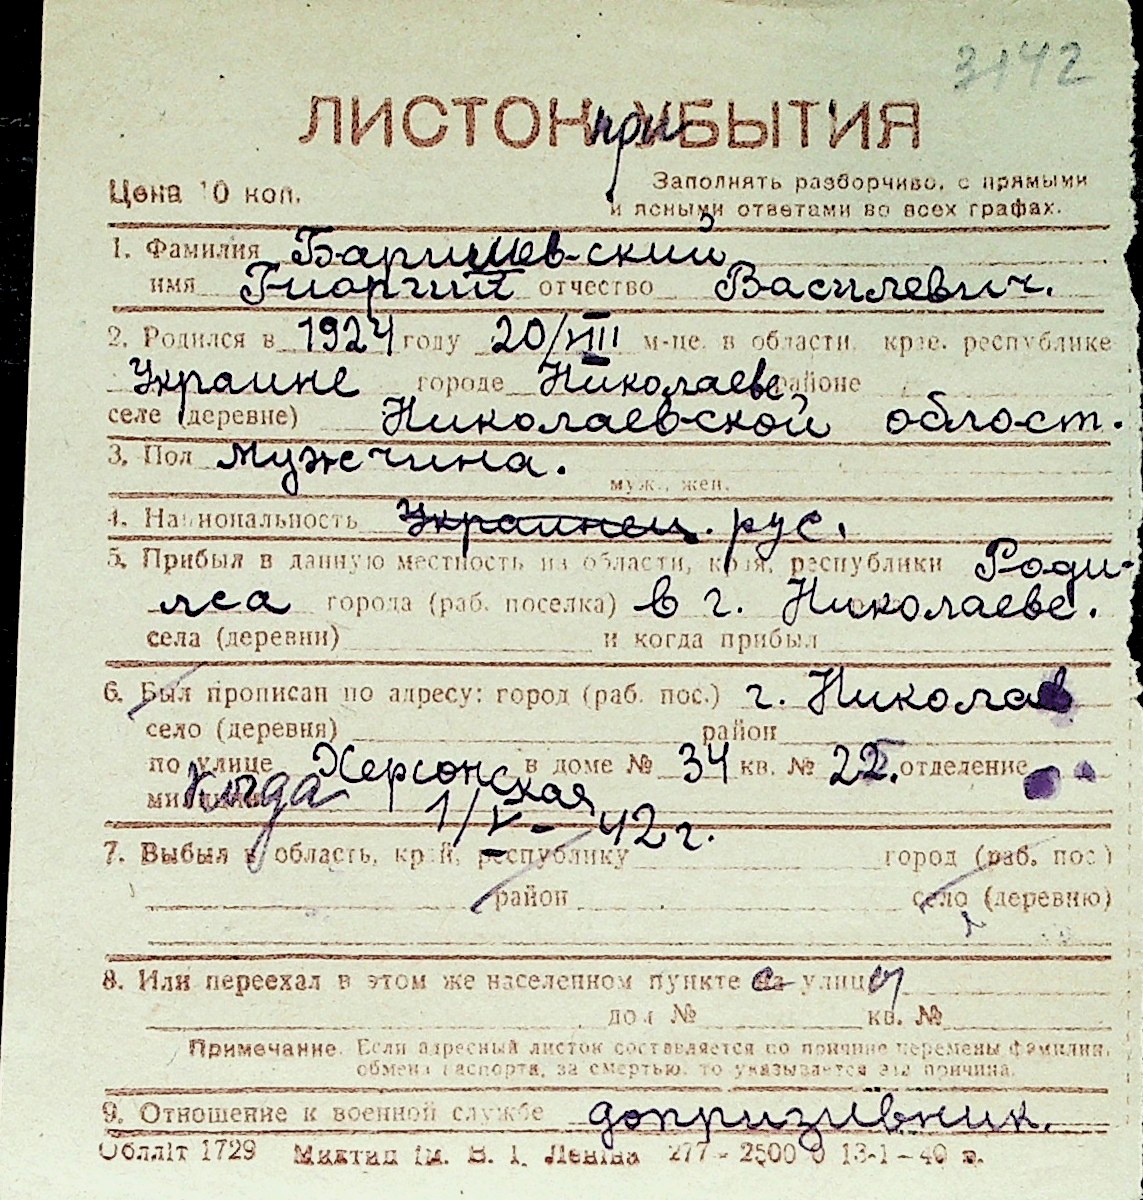 3142
ЛИСТОК приБЫТИЯ
Цена 10 коп.
Заполнять разборчиво, с прямыми
и ясными ответами во всех графах.
1. Фамилия Баришевский
имя Гиоргий отчество Василевич.
2. Родился в 1924 году 20/VIII м-це. в области, крае. республике
Украине городе Николаеве районе
селе (деревне) Николаевской област.
3. Пол мужчина.
муж., жен.
4. Национальность Украинец. рус.
5. Прибыл в данную местность из области, края, республики Роди-
лса города (раб. поселка) в г. Николаеве.
села (деревни) и когда прибыл
6. Был прописан по адресу: город (раб. пос.) г. Николаев
село (деревня) район
по улице Херсонская в доме № 34 кв. № 22. отделение
милиции Когда 1/V - 42 г.
7. Выбыл в область, край, республику город (раб. пос)
район село (деревню)
8. Или переехал в этом же населенном пункте на улицу
дом № кв. №
Примечание. Если адресный листок составляется по причине перемены фамилии,
обмена паспорта, за смертью, то указывается эта причина.
9. Отношение к военной службе допризивник.
Облліт 1729 Миктип ім. В. І. Леніна 277 - 2500 0 13-1-40 р.